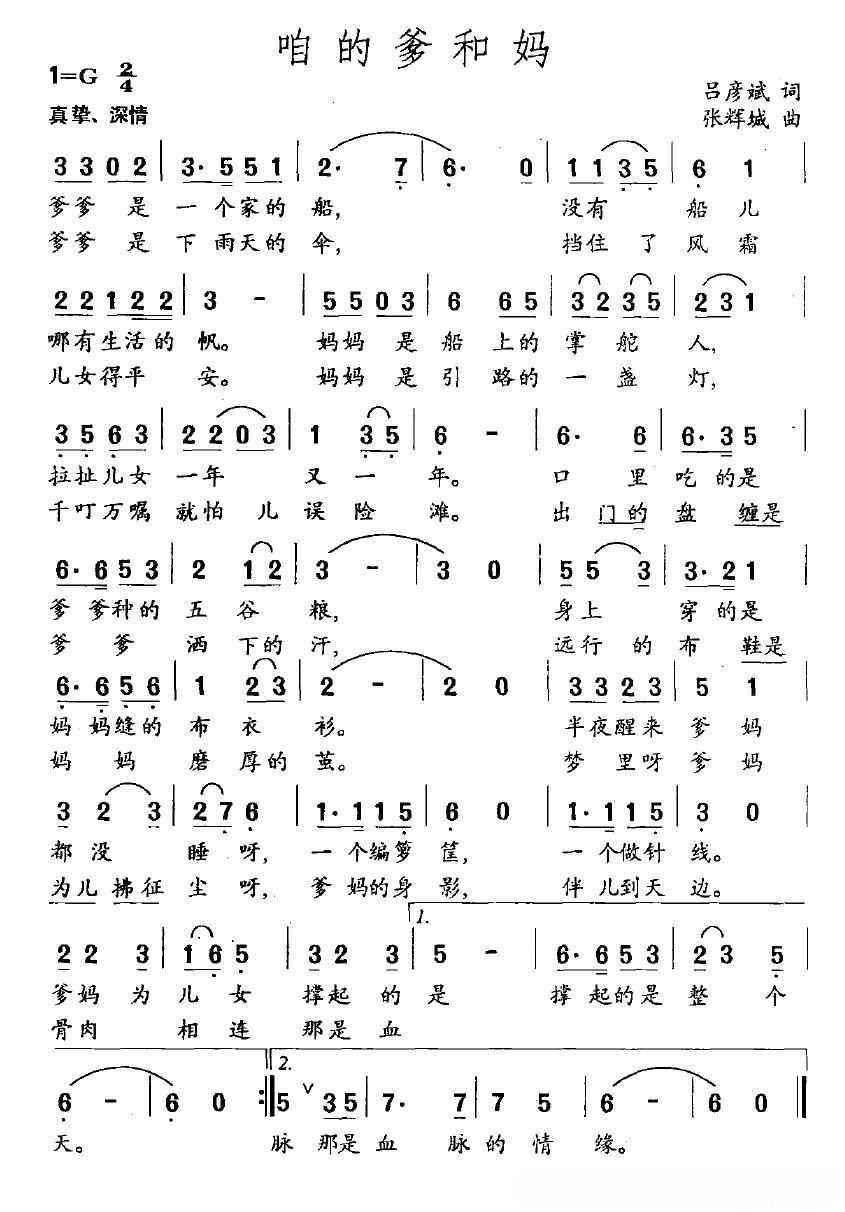 咱的爹和妈
1=G 2/4
真挚、深情
吕彦斌 词
张辉城 曲
3 3 0 2 | 3· 5 5 5 1 | 2· 7 | 6· 0 | 1 1 3 5 | 6 1
爹爹 是 一 个家的 船, 没有 船 儿
爹爹 是 下 雨天的 伞, 挡住 了 风 霜
2 2 1 2 2 | 3 - | 5 5 0 3 | 6 6 5 | 3 2 3 5 | 2 3 1
哪有生活的 帆。 妈妈 是 船 上的 掌 舵 人,
儿女得平 安。 妈妈 是 引 路的 一 盏 灯,
3 5 6 3 | 2 2 0 3 | 1 3 5 | 6 - | 6· 6 | 6· 3 5
拉扯儿女 一年 又 一 年。 口 里 吃 的是
千叮万嘱 就怕 儿 误 险 滩。 出 门的 盘 缠是
6· 6 5 3 | 2 1 2 | 3 - | 3 0 | 5 5 3 | 3· 2 1
爹 爹种的 五 谷 粮, 身上 穿 的是
爹 爹 洒 下的 汗, 远行 的 布 鞋是
6· 6 5 6 | 1 2 3 | 2 - | 2 0 | 3 3 2 3 | 5 1
妈 妈缝的 布 衣 衫。 半夜醒来 爹 妈
妈 妈 磨 厚的 茧。 梦 里呀 爹 妈
3 2 3 | 2 7 6 | 1· 1 1 5 | 6 0 | 1· 1 1 5 | 3 0
都 没 睡 呀, 一 个编箩 筐, 一 个做针 线。
为儿 拂征 尘 呀, 爹 妈的身 影, 伴 儿到天 边。
1.
2 2 3 | 1 6 5 | 3 2 3 | 5 - | 6· 6 5 3 | 2 3 5
爹妈 为 儿 女 撑起 的 是 撑 起的是 整 个
骨肉 相 连 那是 血
2.
6 - | 6 0 :‖ 5 ∨ 3 5 | 7· 7 | 7 5 | 6 - | 6 0 ‖
天。 脉 那是 血 脉 的 情 缘。